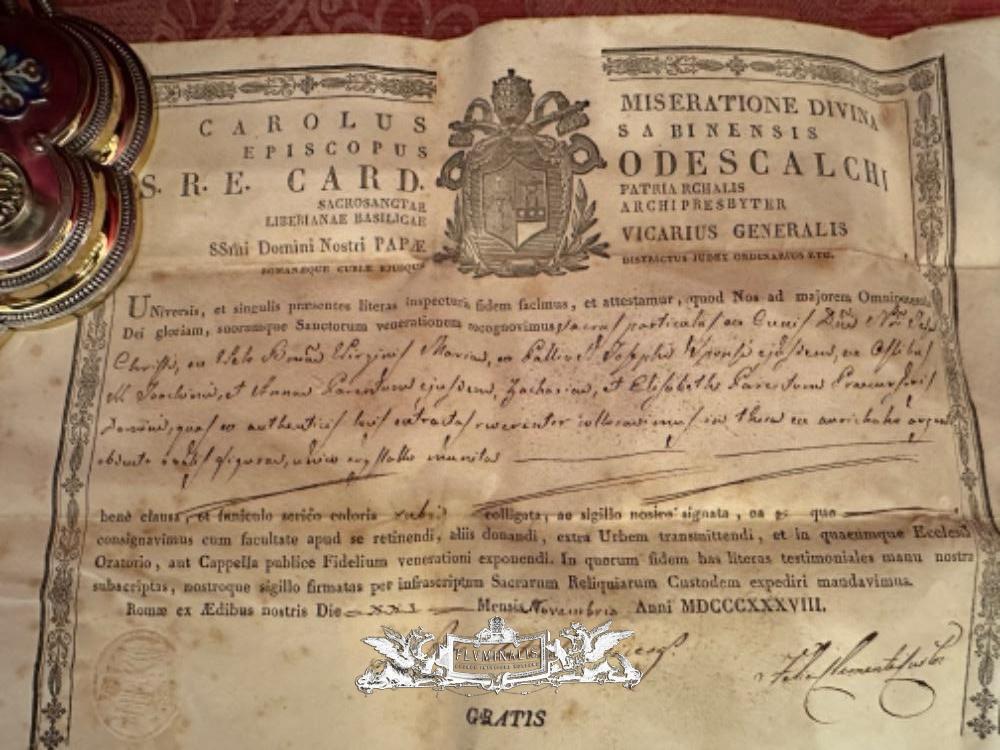 CAROLUS MISERATIONE DIVINA
EPISCOPUS SABINENSIS
S. R. E. CARD. ODESCALCHI
SACROSANCTAE PATRIARCHALIS
LIBERIANAE BASILICAE ARCHIPRESBYTER
SSmi Domini Nostri PAPÆ VICARIUS GENERALIS
ROMANAEQUE CURIÆ EJUSQUE DISTRICTUS JUDEX ORDINARIUS ETC.
Universis, et singulis præsentes literas inspecturis fidem facimus, et attestamur, quod Nos ad majorem Omnipotentis
Dei gloriam, suorumque Sanctorum venerationem recognovimus sacras particulas ex Cunis
Christi, ex Velo Virginis Mariæ, ex Pallio S. Josephi Sponsi ejusdem, ex Ossibus
Joachim, et Annæ Parentum ejusdem, Zachariæ, et Elisabeth Parentum Præcursoris
Domini, quas ex authenticis locis extractas reverenter collocavimus in theca ex aurichalco
ovalis figuræ, unico crystallo munita
benè clausa, et funiculo serico coloris rubri colligata, ac sigillo nostro signata, ea que
consignavimus cum facultate apud se retinendi, aliis donandi, extra Urbem transmittendi, et in quacumque Ecclesia
Oratorio, aut Cappella publicæ Fidelium venerationi exponendi. In quorum fidem has literas testimoniales manu nostra
subscriptas, nostroque sigillo firmatas per infrascriptum Sacrarum Reliquiarum Custodem expediri mandavimus.
Romæ ex Ædibus nostris Die XXI Mensis Novembris Anni MDCCCXXXVIII.
FLVMINALIS
Felix Clementi Custos
GRATIS